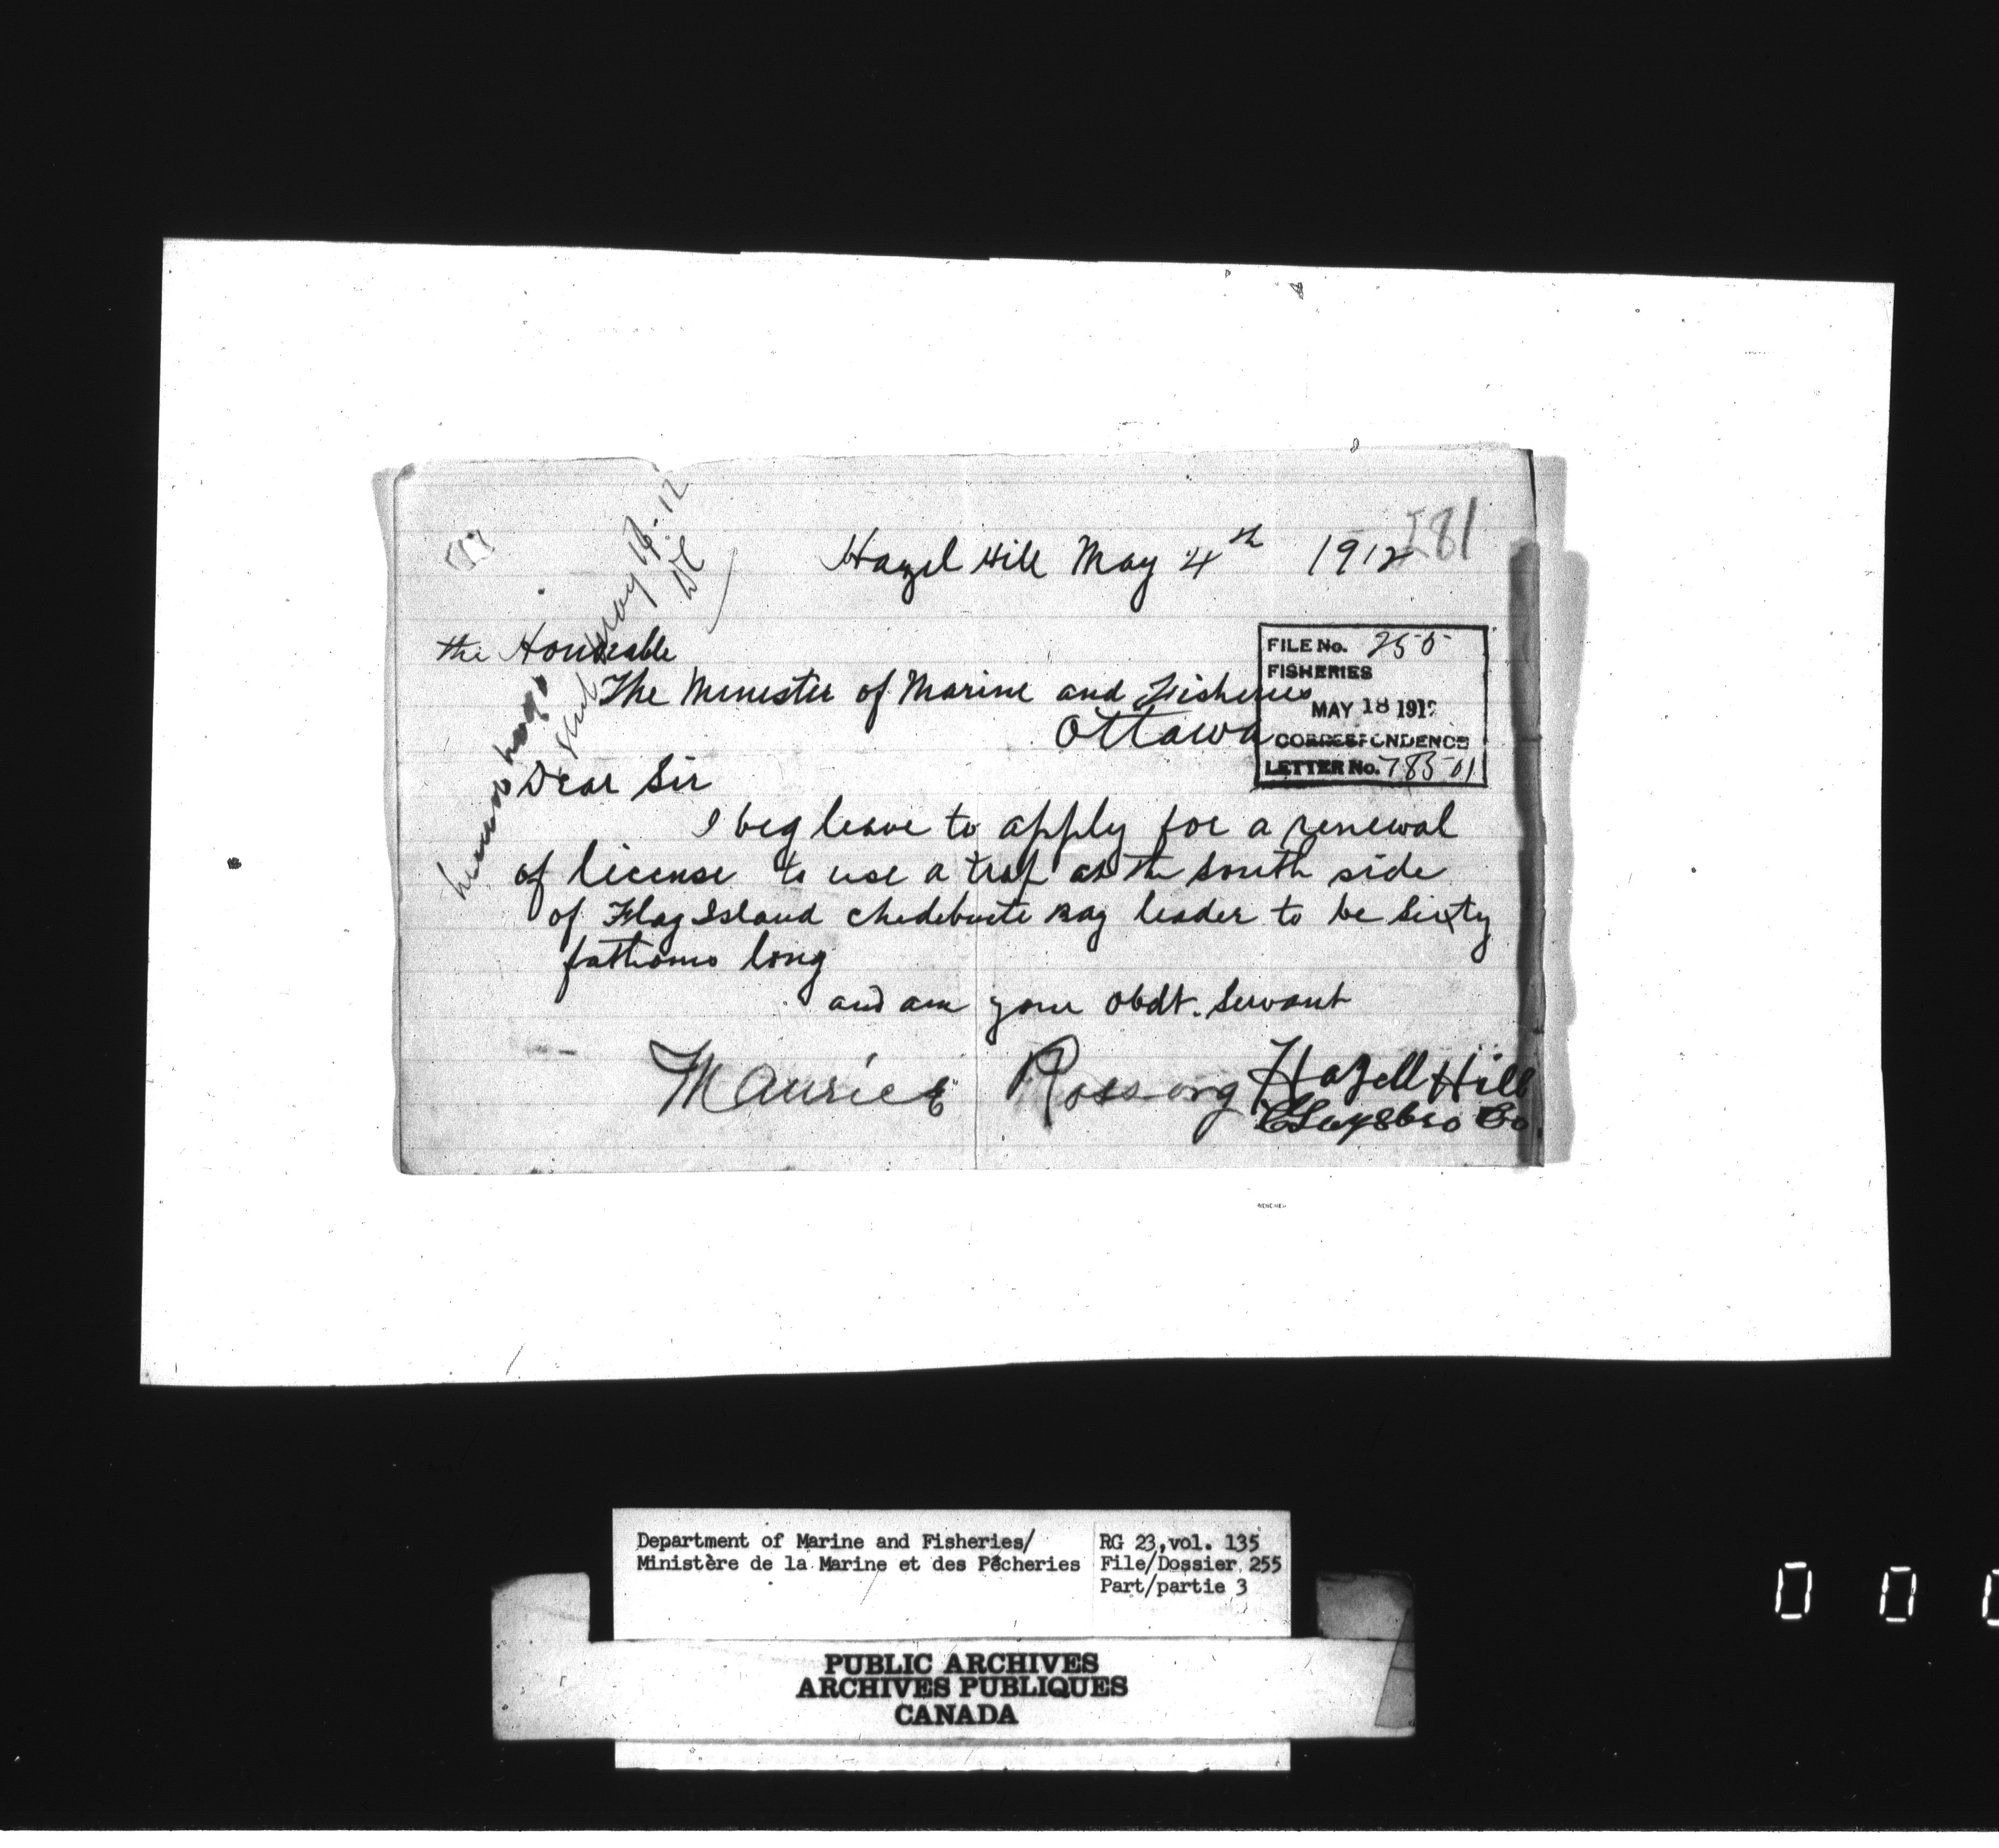 281
Hazel Hill May 4th 1912
the Honorable
The Minester of Marine and Fisheries
Ottawa
FILE No. 255
FISHERIES
MAY 18 1912
CORRESPONDENCE
LETTER No. 78501
May 17-12
Dear Sir
I beg leave to apply for a renewal
of license to use a trap at the south side
of Flag Island Chedebucte Bay leader to be sixty
fathoms long
and am your obdt. Servant
Maurice Rossong Hazell Hill
Guysbro Co.
Department of Marine and Fisheries/
Ministère de la Marine et des Pêcheries
RG 23, vol. 135
File/Dossier 255
Part/partie 3
PUBLIC ARCHIVES
ARCHIVES PUBLIQUES
CANADA
0 0 0